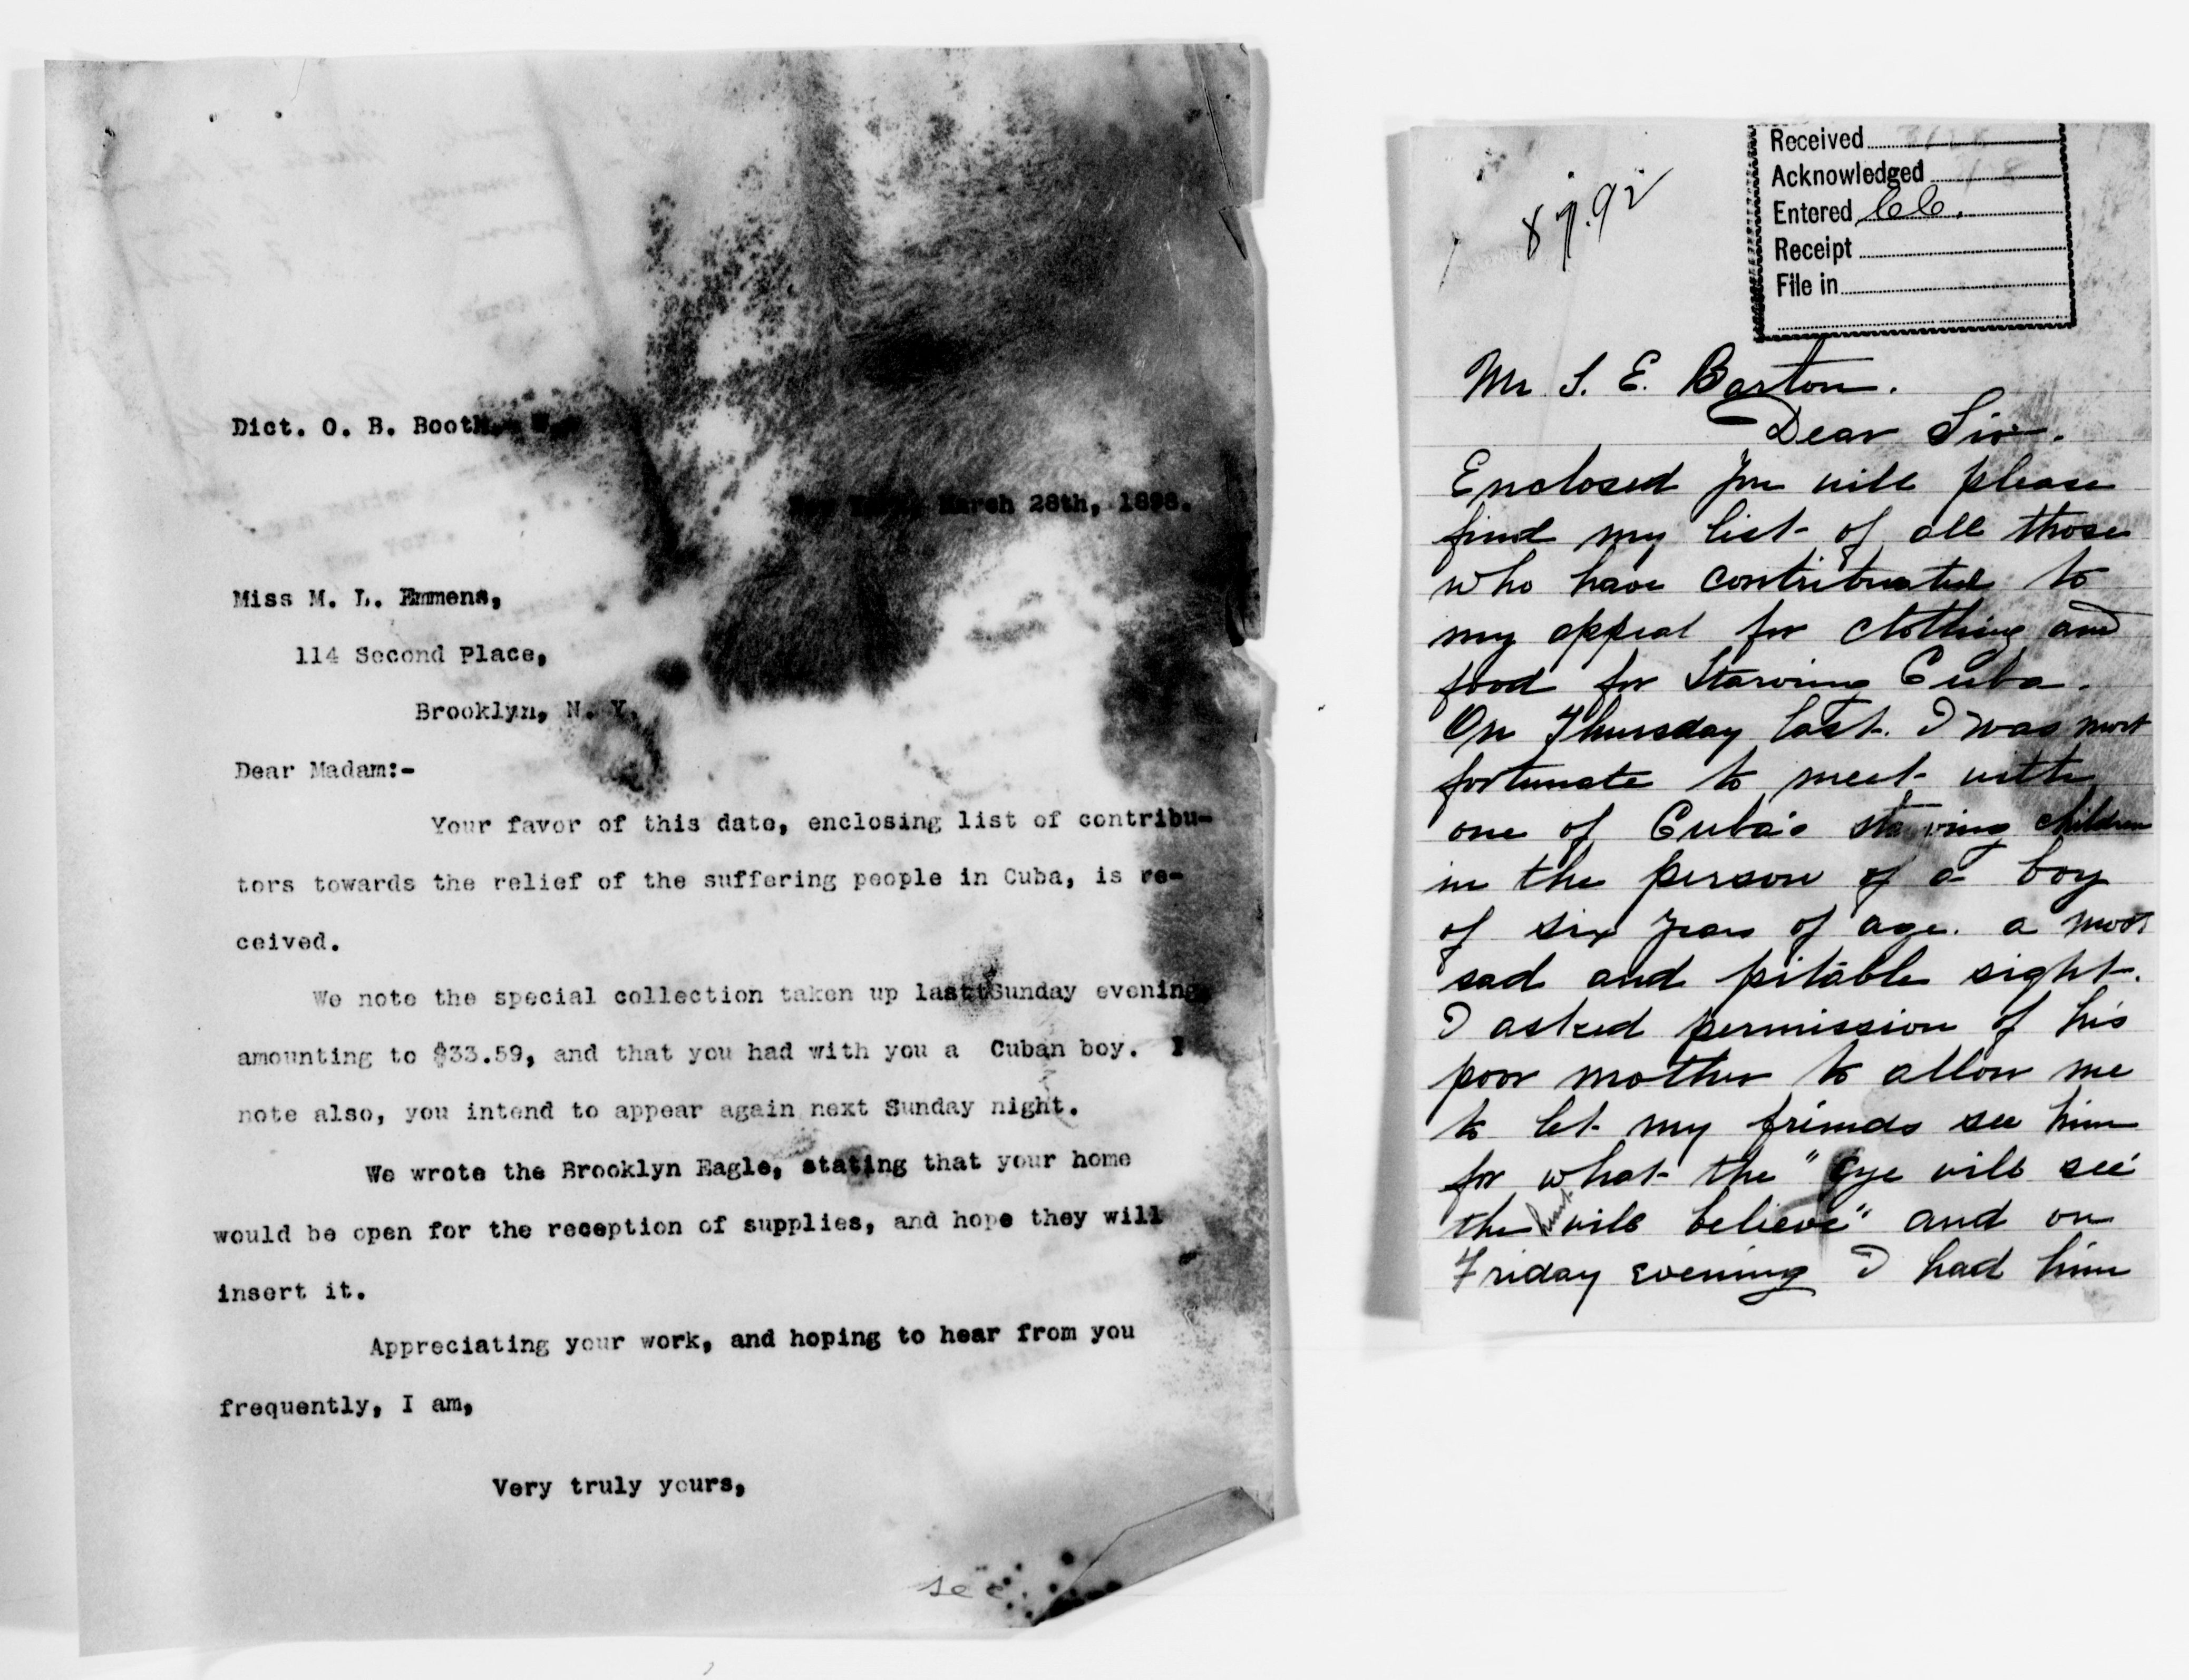 Dict. O. B. Booth.
March 28th, 1898.
Miss M. L. Emmens,
114 Second Place,
Brooklyn, N. Y.
Dear Madam:-
Your favor of this date, enclosing list of contribu-
tors towards the relief of the suffering people in Cuba, is re-
ceived.
We note the special collection taken up lasttSunday evening
amounting to $33.59, and that you had with you a Cuban boy. I
note also, you intend to appear again next Sunday night.
We wrote the Brooklyn Eagle, stating that your home
would be open for the reception of supplies, and hope they will
insert it.
Appreciating your work, and hoping to hear from you
frequently, I am,
Very truly yours,
sec.
Received
Acknowledged
Entered
Receipt
File in
Mr. S. E. Barton.
Dear Sir.
Enclosed you will please
find my list of all those
who have contributed to
my appeal for clothing and
food for Starving Cuba.
On Thursday last. I was most
fortunate to meet with
one of Cuba's starving children
in the person of a boy
of six years of age. a most
sad and pitable sight.
I asked permission of his
poor mother to allow me
to let my friends see him
for what the "Eye will see
the heart will believe" and on
Friday evening I had him